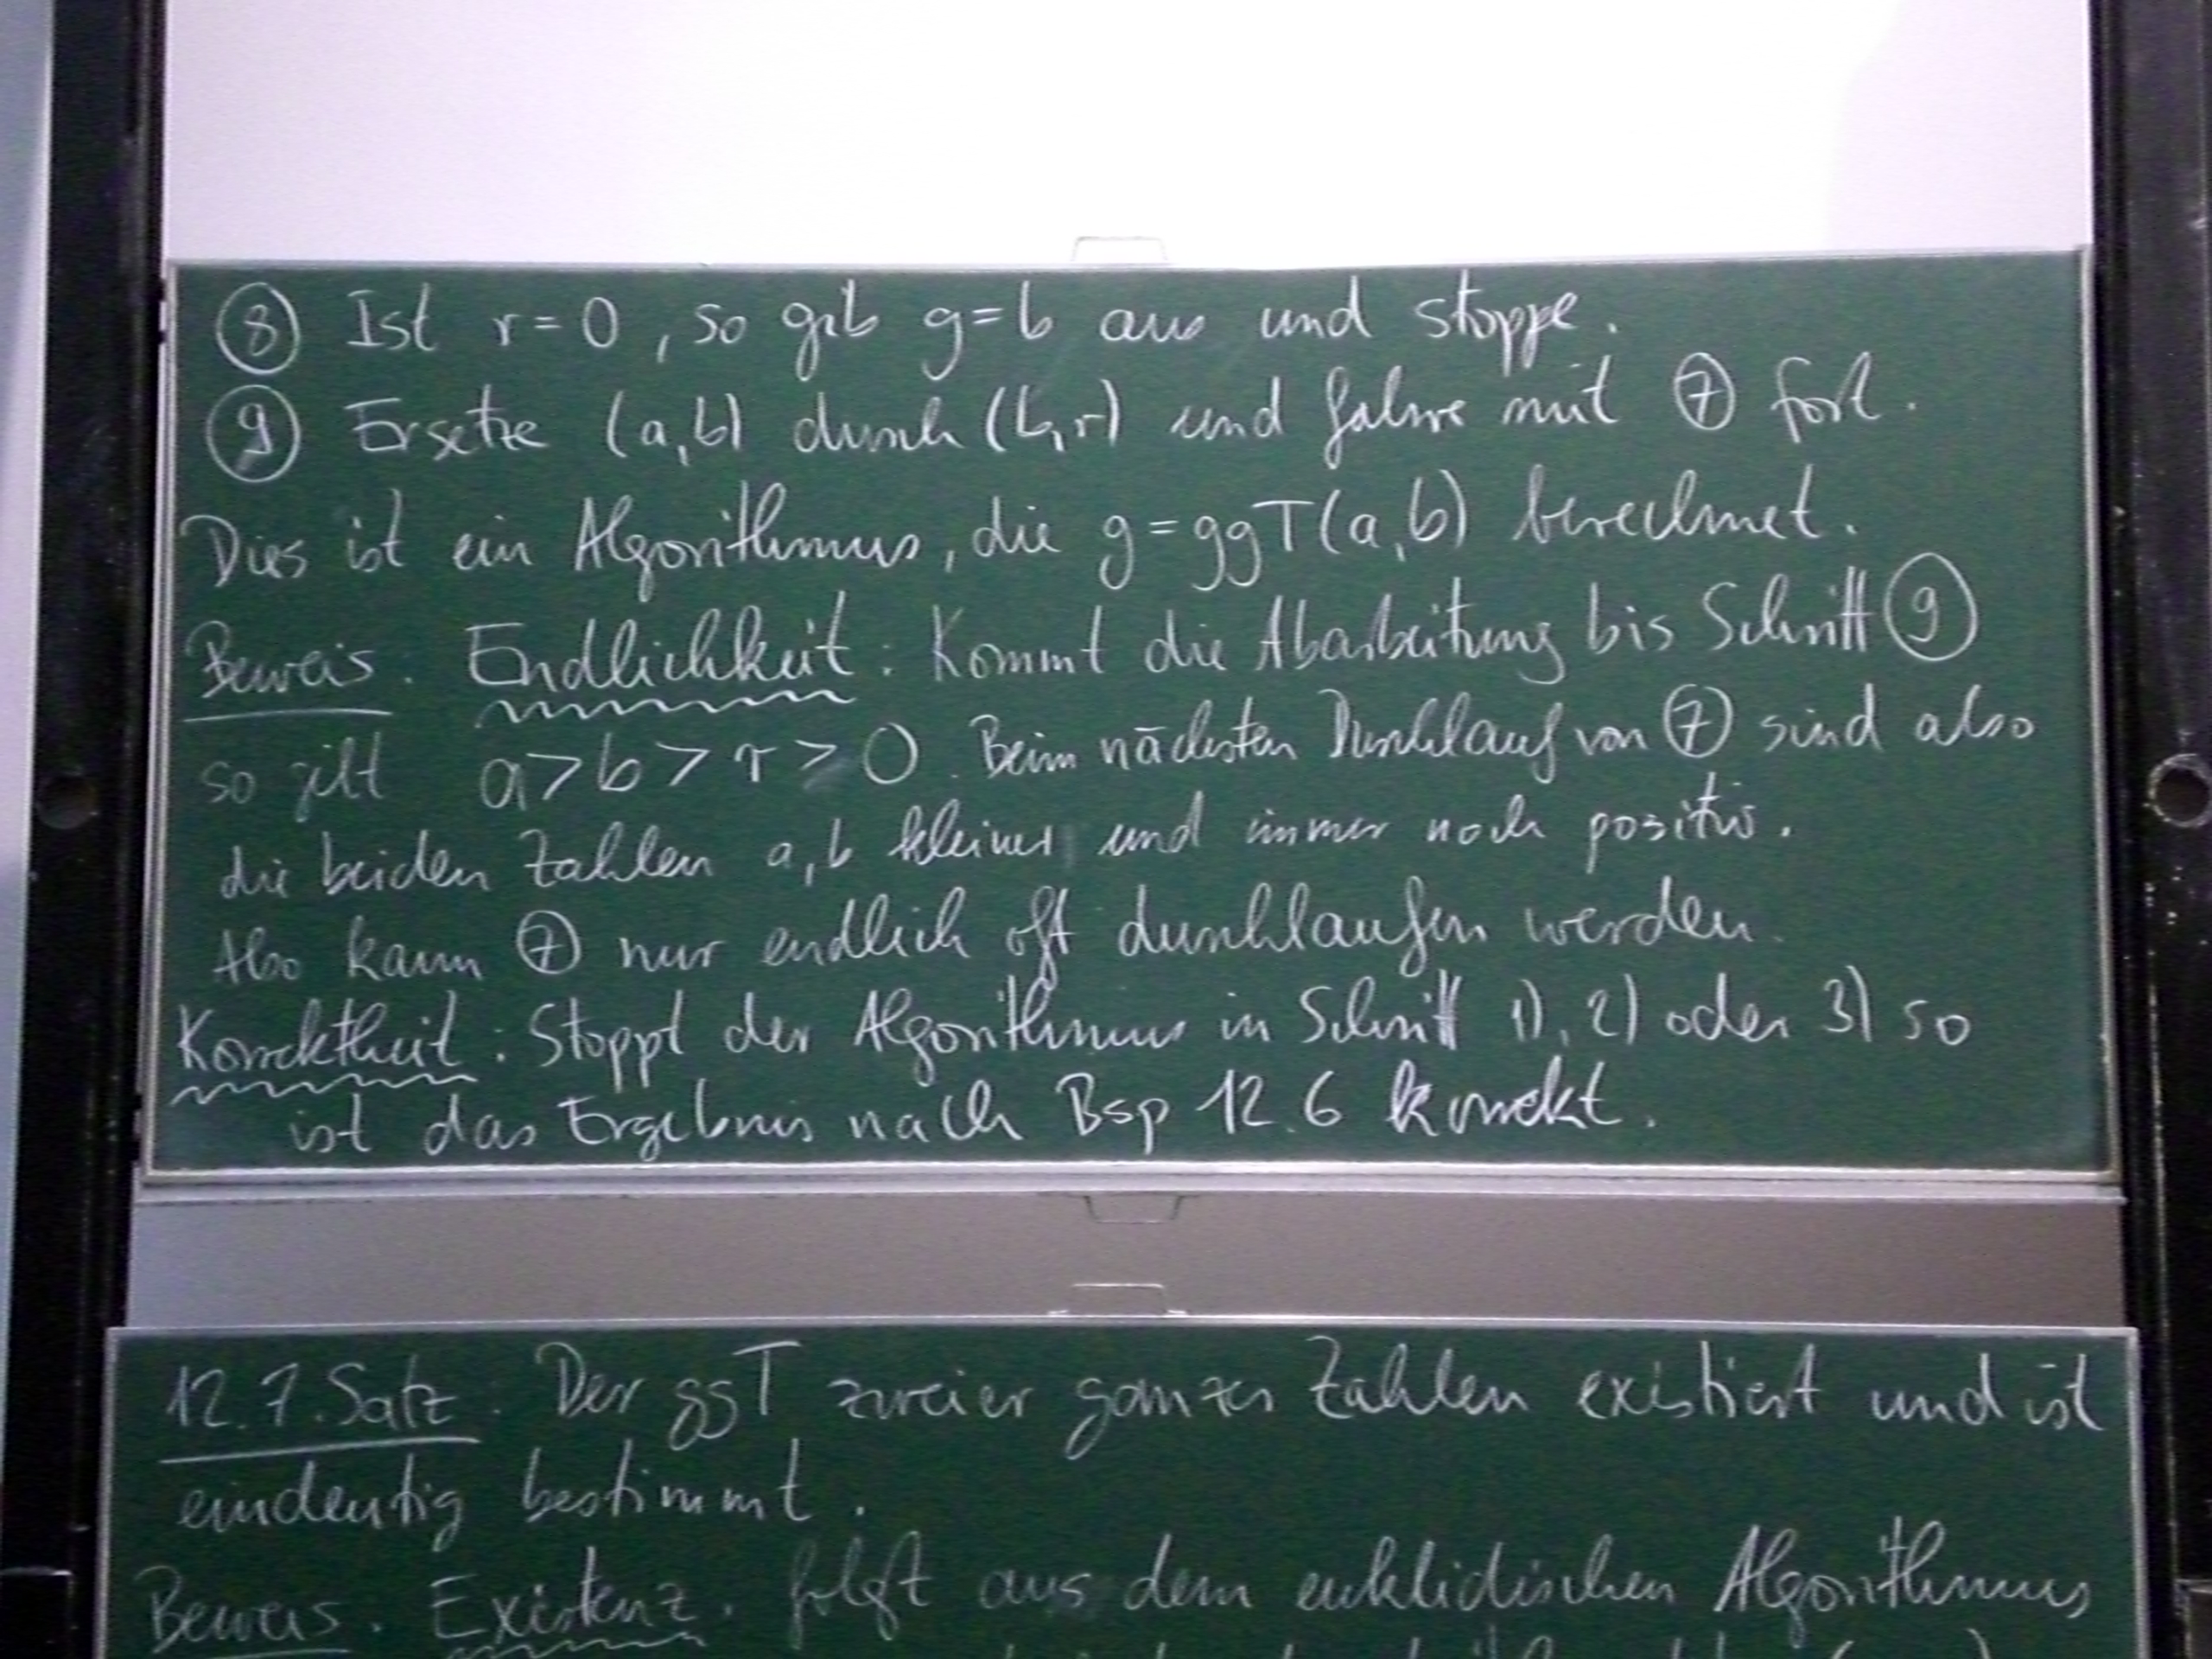 ⑧ Ist r=0, so gib g=b aus und stoppe.
⑨ Ersetze (a,b) durch (b,r) und fahre mit ⑦ fort.
Dies ist ein Algorithmus, die g=ggT(a,b) berechnet.
Beweis. Endlichkeit: Kommt die Abarbeitung bis Schritt ⑨
so gilt a>b>r>0. Beim nächsten Durchlauf von ⑦ sind also
die beiden Zahlen a,b kleiner und immer noch positiv.
Also kann ⑦ nur endlich oft durchlaufen werden.
Korrektheit: Stoppt der Algorithmus in Schritt 1), 2) oder 3) so
ist das Ergebnis nach Bsp 12.6 korrekt.
12.7. Satz. Der ggT zweier ganzer Zahlen existiert und ist
eindeutig bestimmt.
Beweis. Existenz. folgt aus dem euklidischen Algorithmus